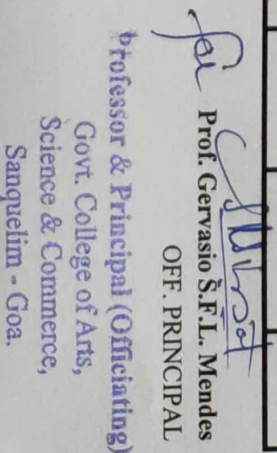 for
Prof. Gervasio S.F.L. Mendes
OFF. PRINCIPAL
Professor & Principal (Officiating)
Govt. College of Arts,
Science & Commerce,
Sanquelim - Goa.